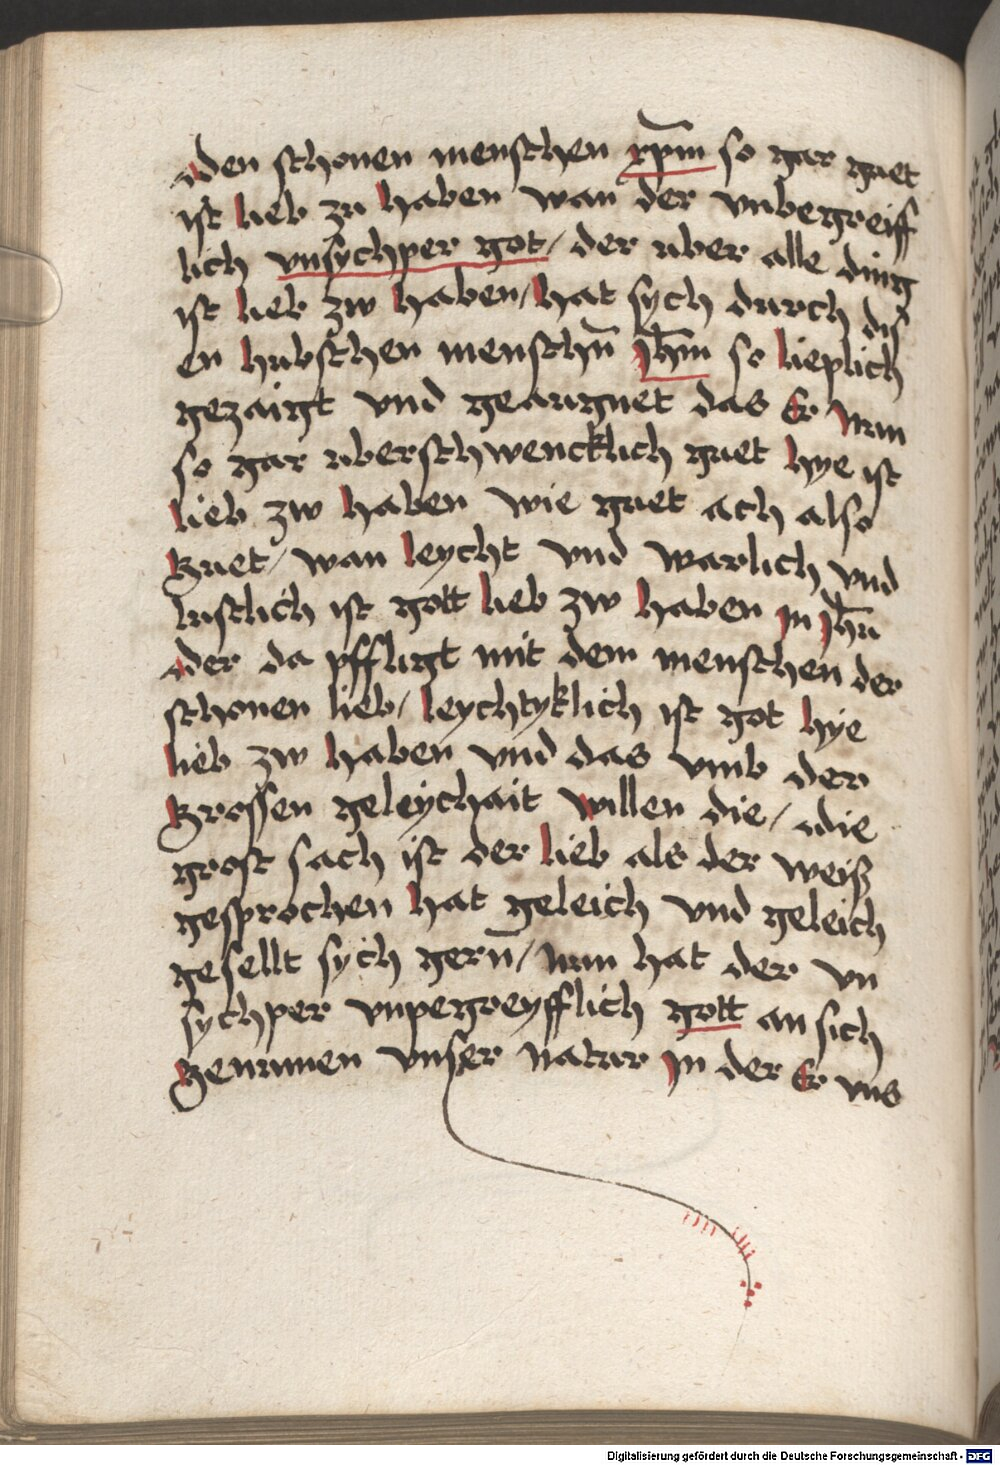 den schonen menschen xp̄m so gar guet
ist lieb zu haben wan der vnbegreiff
lich vnsychper got / der uber alle ding
ist lieb zw haben / hat sych durch dis
en hubschen menschn̄ Jhm̄ so lieplich
gezaigt vnd geaugnet das Er Nun
so gar uberschwencklich guet hye ist
lieb zw haben wie guet ach also
guet / wan leycht vnd warlich vnd
lustlich ist gott lieb zw haben Jn Jhū
der da pffligt mit dem menschen der
schonen lieb / leychtyklich ist got hye
lieb zw haben vnd das vmb der
grossen geleychait willen die / die
grost sach ist der lieb als der weiß
gesprochen hat geleich vnd geleich
gesellt sych gern̄ / Nun hat der vn
sychper vnpergreyfflich gott an sich
genumen vnser Natur Jn der Er vns
Digitalisierung gefördert durch die Deutsche Forschungsgemeinschaft - DFG